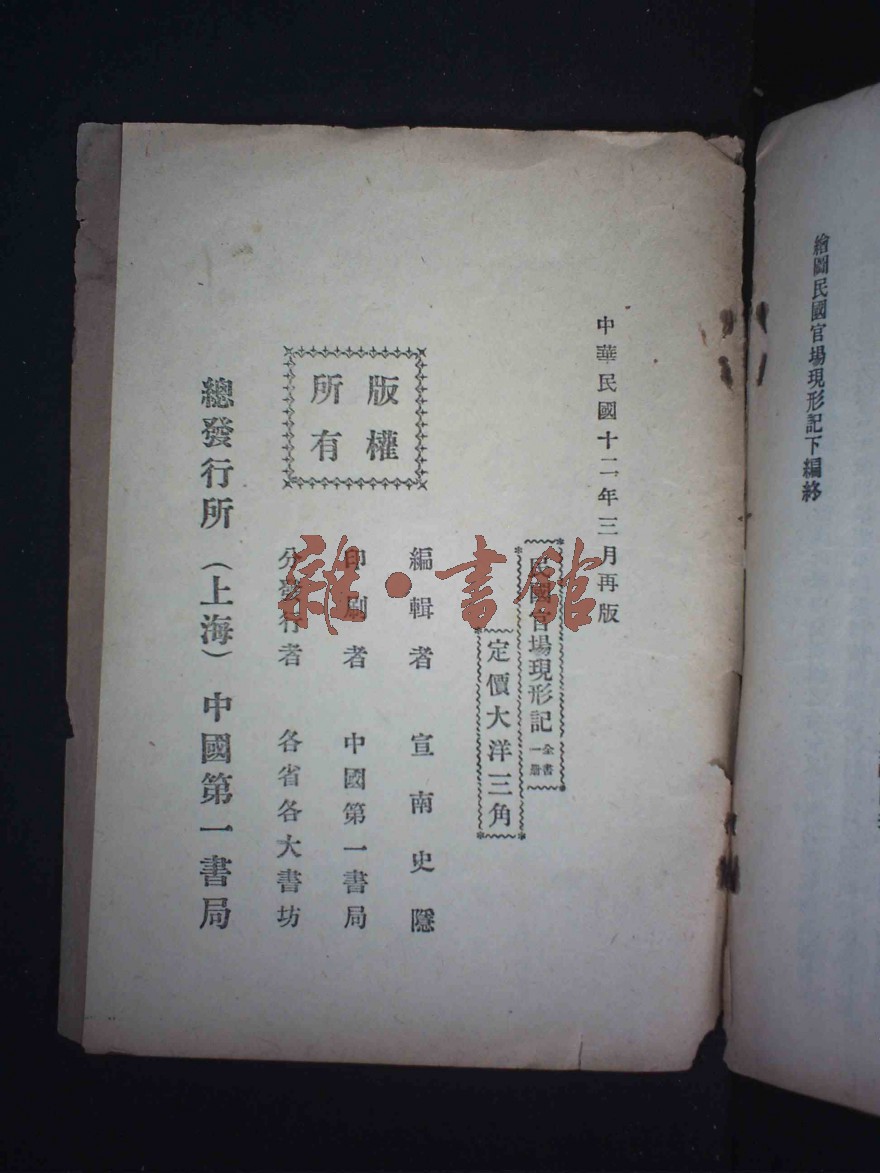 繪圖民國官場現形記下編終
中華民國十二年三月再版
民國官場現形記 全書一册
定價大洋三角
編輯者 宣南史隱
印刷者 中國第一書局
分發行者 各省各大書坊
版權
所有
總發行所（上海）中國第一書局
雜·書館